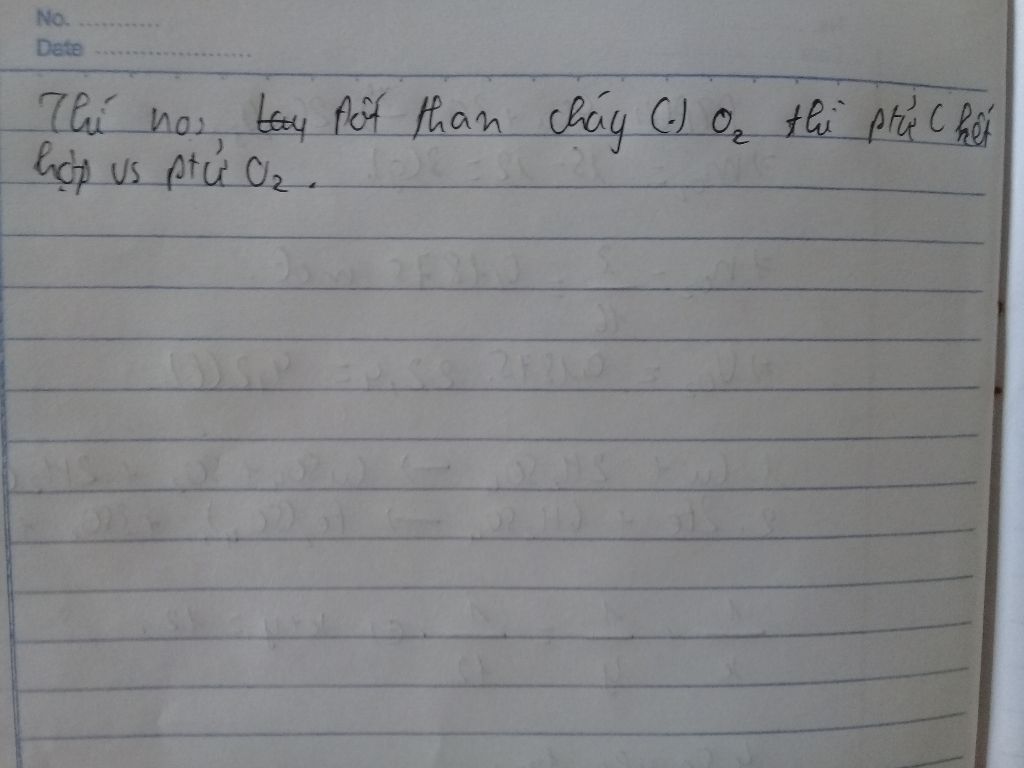 No. ...........
Date .....................
Thí no, đốt than cháy (-) O₂ thì ptử C kết
hợp vs ptử O₂.